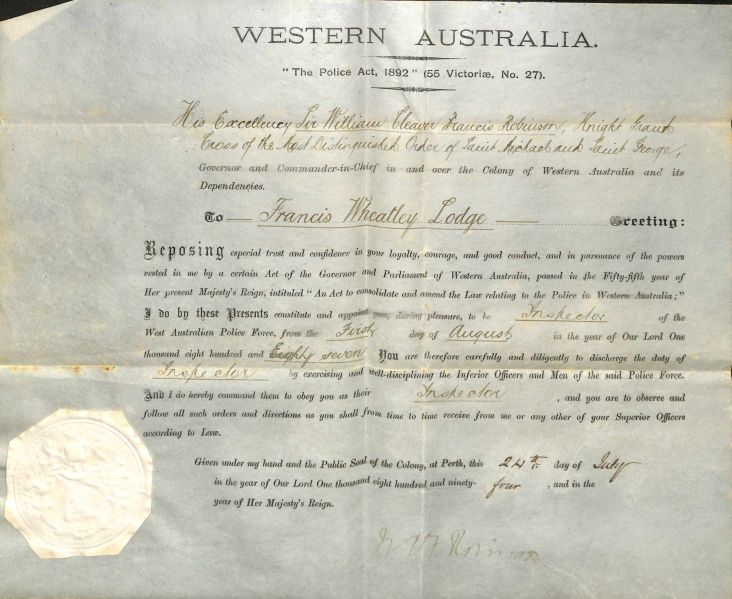 WESTERN AUSTRALIA.
"The Police Act, 1892" (55 Victoriæ, No. 27).
His Excellency Sir William Cleaver Francis Robinson, Knight Grand
Cross of the Most Distinguished Order of Saint Michael and Saint George,
Governor and Commander-in-Chief in and over the Colony of Western Australia and its
Dependencies.
To Francis Wheatley Lodge Greeting:
Reposing especial trust and confidence in your loyalty, courage, and good conduct, and in pursuance of the powers
vested in me by a certain Act of the Governor and Parliament of Western Australia, passed in the Fifty-fifth year of
Her present Majesty's Reign, intituled "An Act to consolidate and amend the Law relating to the Police in Western Australia;"
I do by these Presents constitute and appoint you, during pleasure, to be Inspector of the
West Australian Police Force, from the First day of August in the year of Our Lord One
thousand eight hundred and Eighty seven You are therefore carefully and diligently to discharge the duty of
Inspector by exercising and well-disciplining the Inferior Officers and Men of the said Police Force.
And I do hereby command them to obey you as their Inspector , and you are to observe and
follow all such orders and directions as you shall from time to time receive from me or any other of your Superior Officers
according to Law.
Given under my hand and the Public Seal of the Colony, at Perth, this 24th day of July
in the year of Our Lord One thousand eight hundred and ninety-four , and in the
year of Her Majesty's Reign.
Robinson